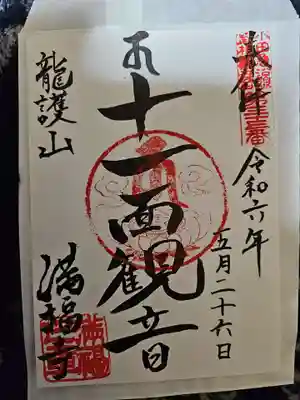 奉拝
令和六年
五月二十六日
十一面観音
龍護山
満福寺